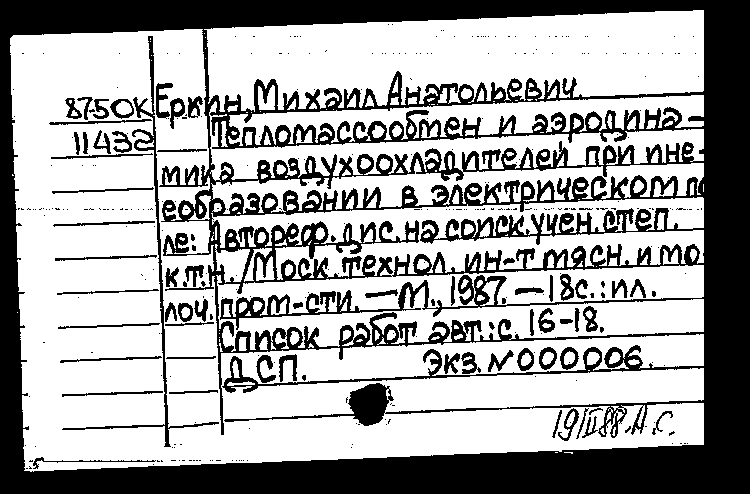 87-5OK Еркин, Михаил Анатольевич.
11432 Тепломассообмен и аэродина-
мика воздухоохладителей при ине-
еобразовании в электрическом по
ле: Автореф. дис. на соиск. учен. степ.
к.т.н. / Моск. технол. ин-т мясн. и мо-
лоч. пром-сти. — М., 1987. — 18с.: ил.
Список работ авт.: с. 16-18.
ДСП. Экз. N 000006.
19/II 88. А.С.